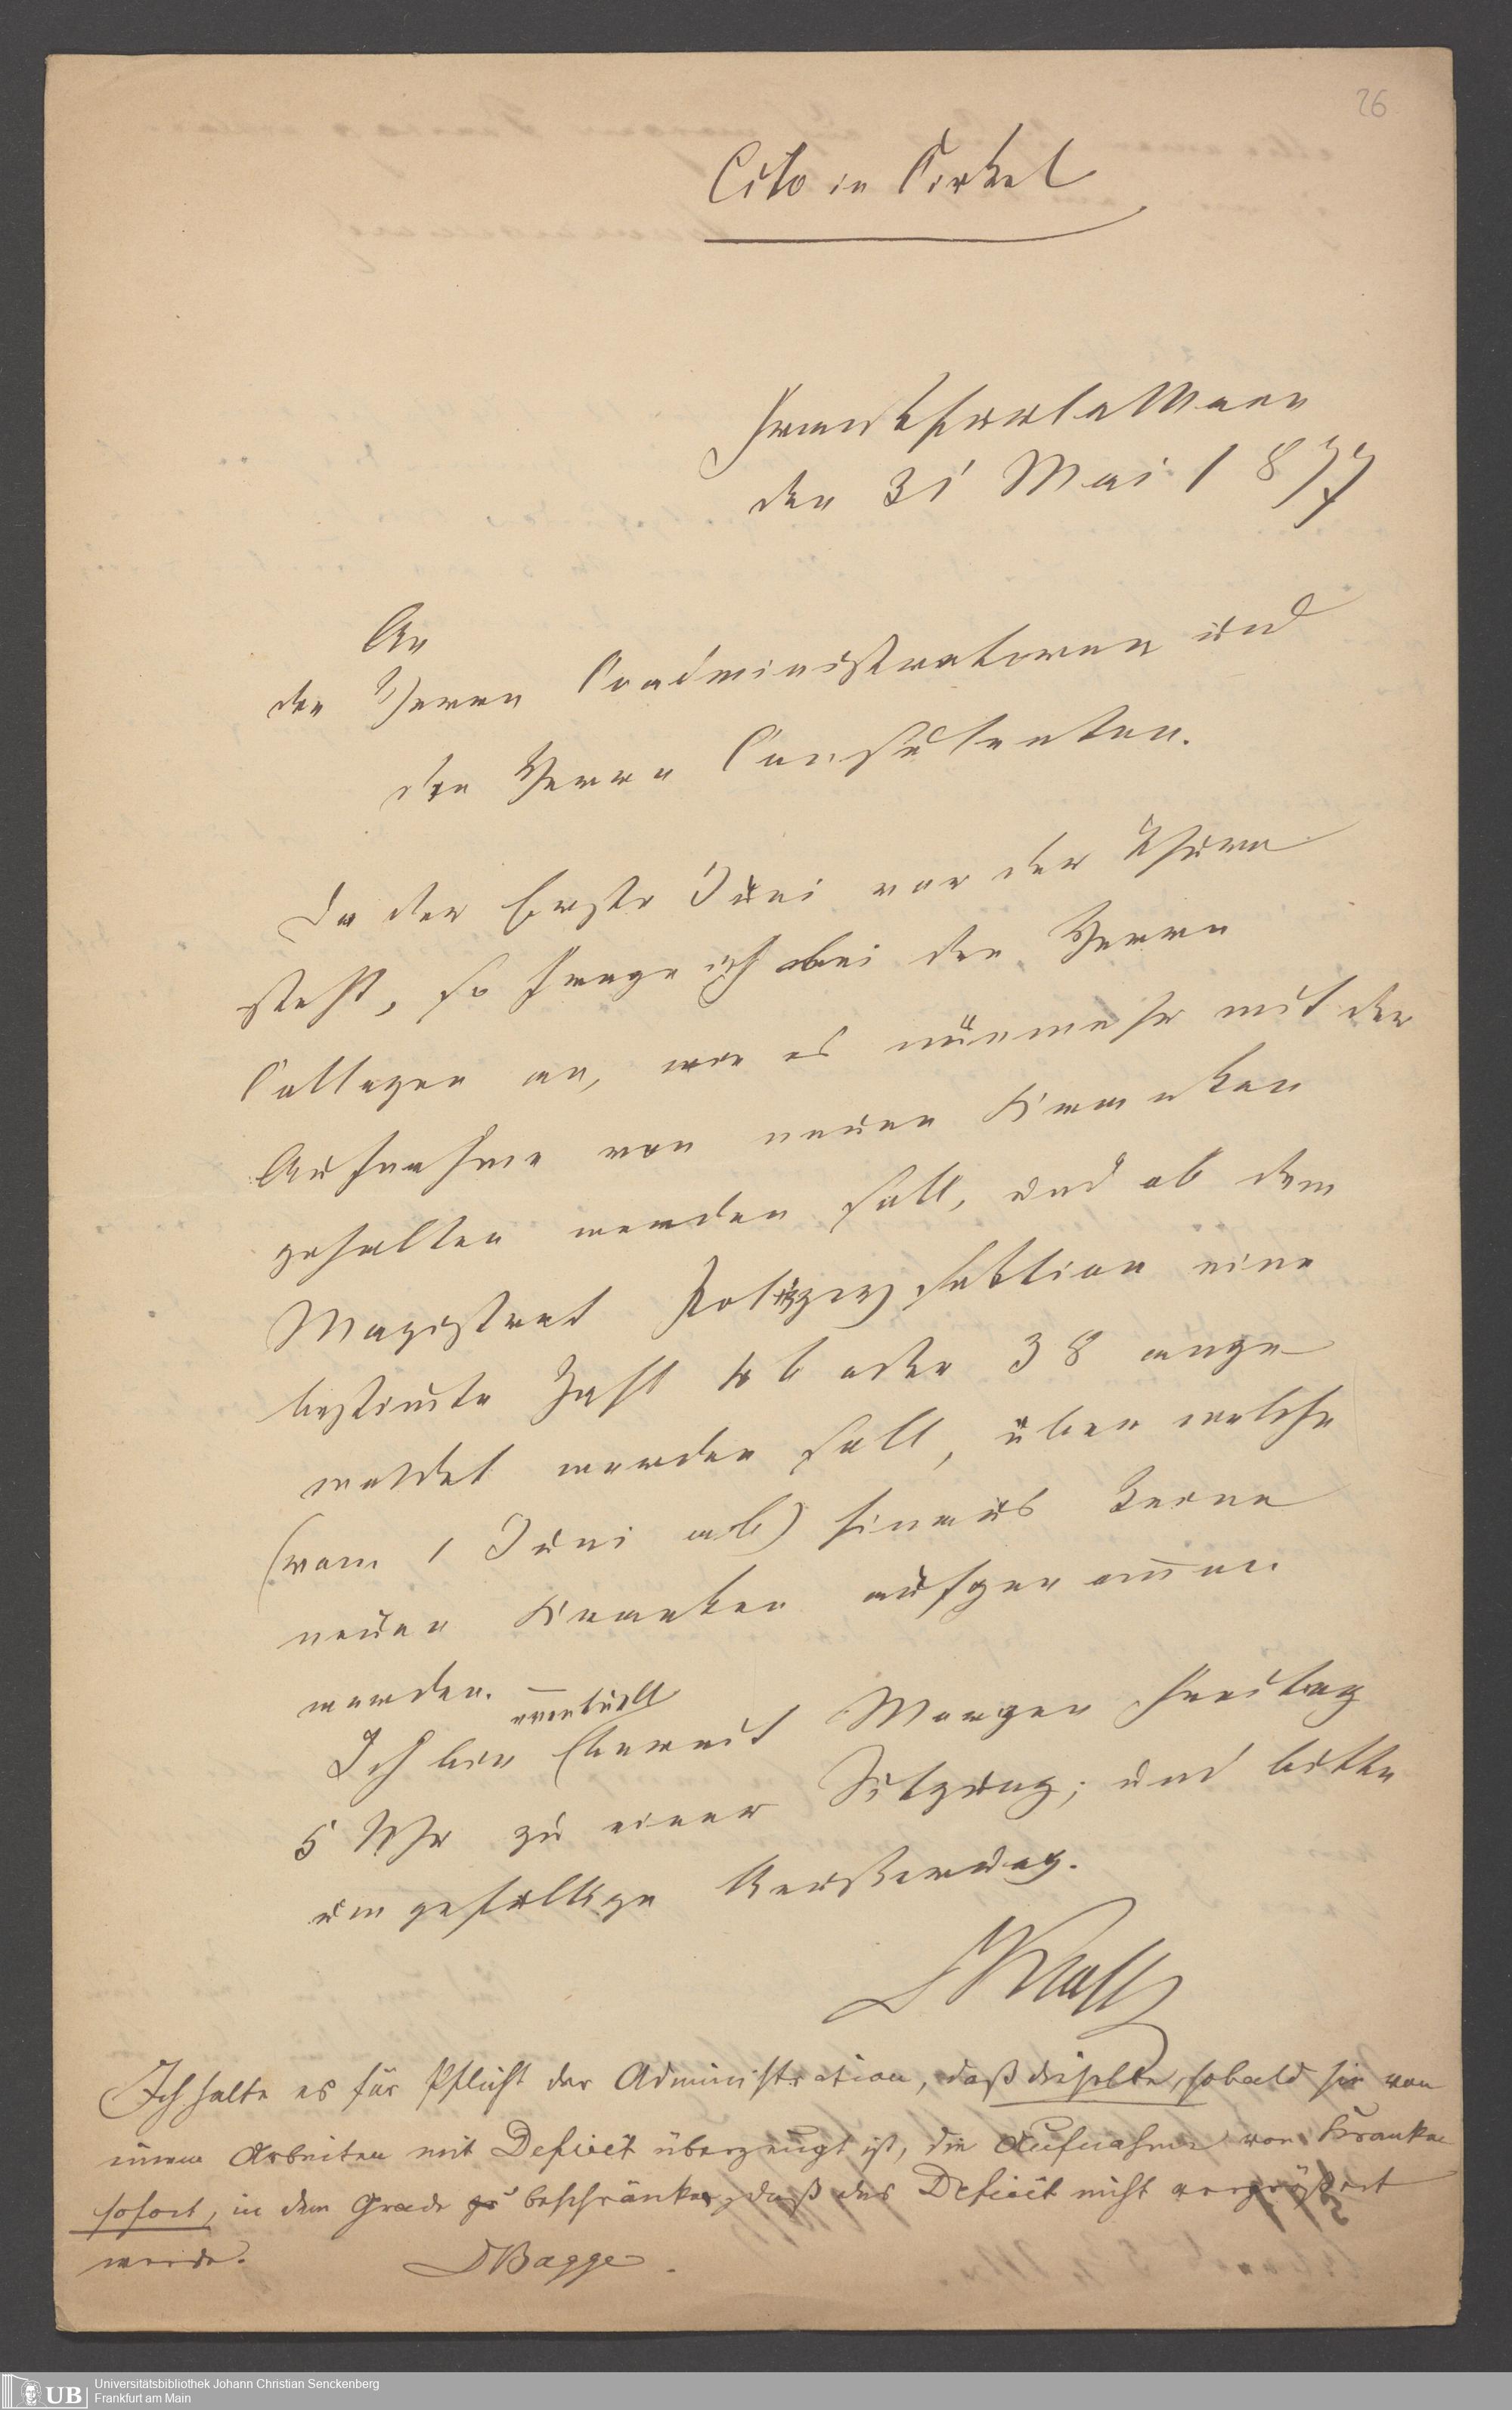 26
Cito in Cirkel
Frankfurt a Main
den 31 Mai 1877
An
den Herrn Coadministratoren und
den Herrn Consulenten.
Da der Erste Juni vor der Thüre
steht, so frage ich bei den Herrn
Collegen an, wie es nunmehr mit der
Aufnahme von neuen Kranken
gehalten werden soll, und ob dem
Magistrat Polizeysektion eine
bestimte Zahl ob oder 38 ange
meldet werden soll, über welche
(vom 1 Juni ab) hinaus keine
neuen Kranken aufgenommen
werden. –
eventuell
Ich bin bereit Morgen Freitag
5 Uhr zu einer Sitzung; und bitte
um gefällige Äußerung.
Ich halte es für Pflicht der Administration, daß dieselbe, sobald sie von
einem Arbeiten mit Deficit überzeugt ist, die Aufnahme von Kranken
sofort, in dem Grade zu beschränken, daß das Deficit nicht vergrößert
werde. DBagge.
UB Universitätsbibliothek Johann Christian Senckenberg
Frankfurt am Main